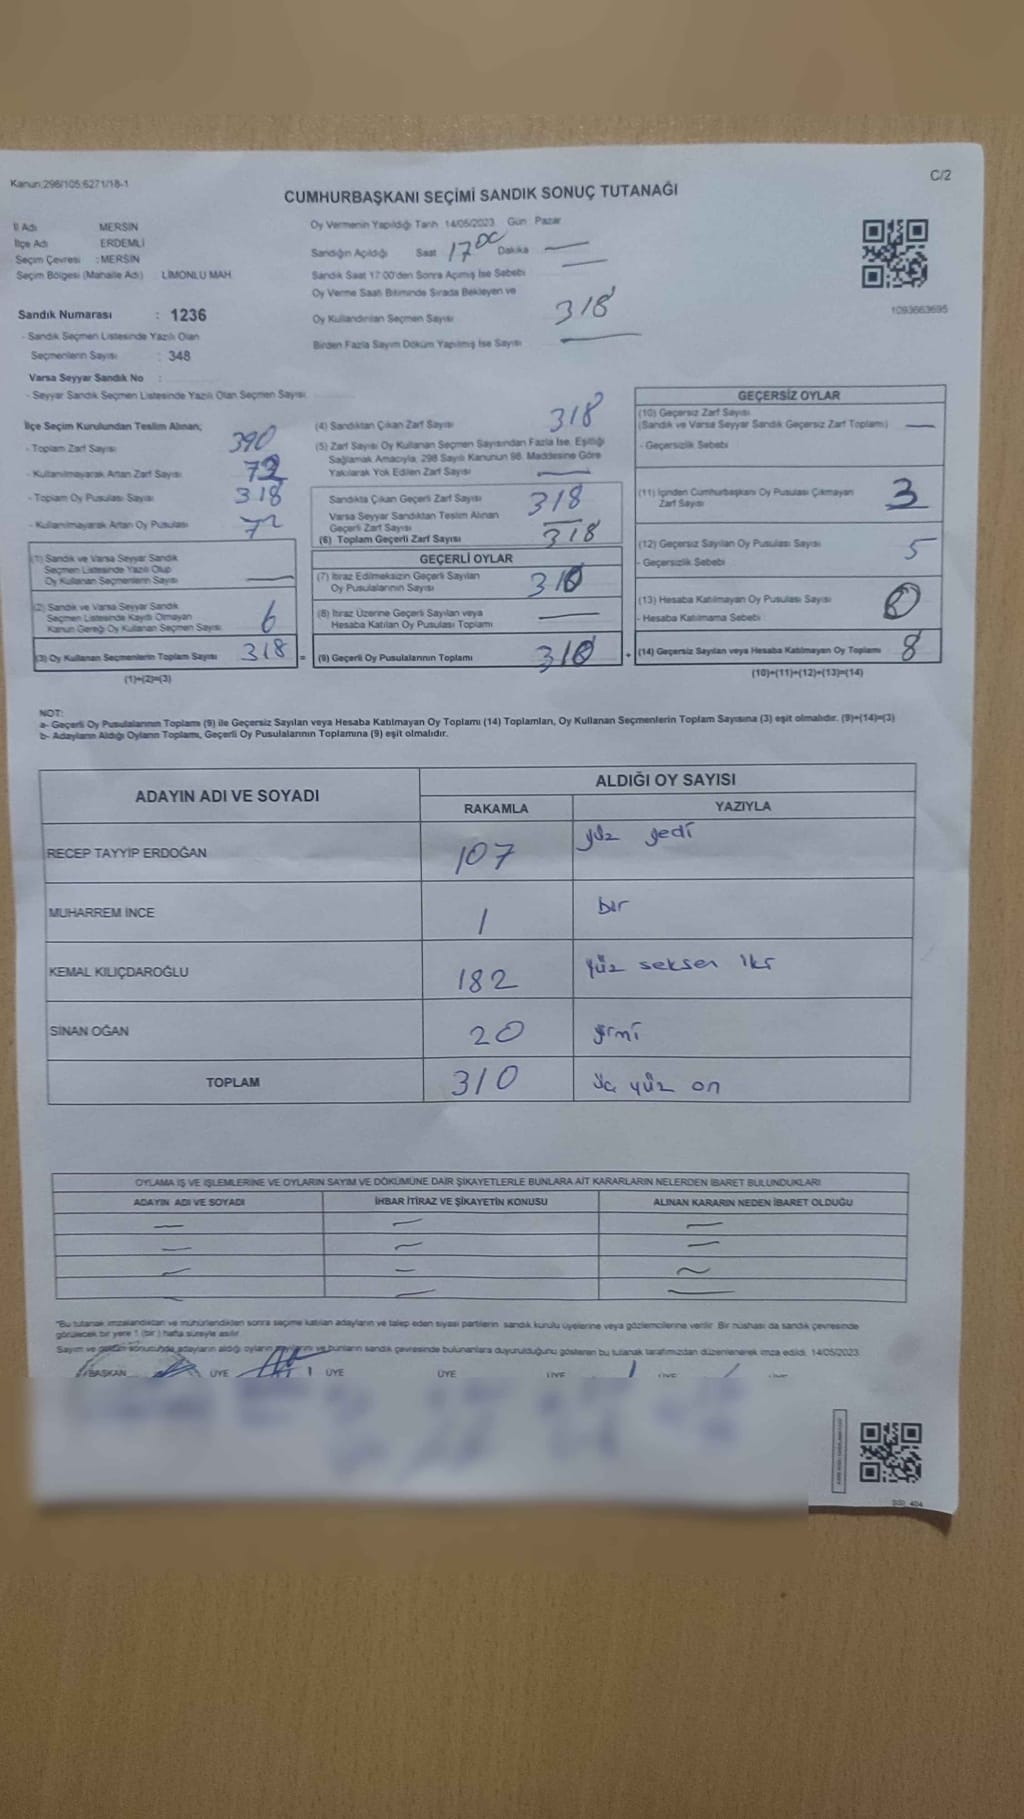 Kanun:298/105;6271/18-1
C/2
CUMHURBAŞKANI SEÇİMİ SANDIK SONUÇ TUTANAĞI
İl Adı MERSİN
İlçe Adı ERDEMLİ
Seçim Çevresi : MERSİN
Seçim Bölgesi (Mahalle Adı) : LİMONLU MAH.
Sandık Numarası : 1236
- Sandık Seçmen Listesinde Yazılı Olan
Seçmenlerin Sayısı : 348
Varsa Seyyar Sandık No :
- Seyyar Sandık Seçmen Listesinde Yazılı Olan Seçmen Sayısı
Oy Vermenin Yapıldığı Tarih 14/05/2023 Gün Pazar
Sandığın Açıldığı Saat 17 00 Dakika —
Sandık Saat 17:00'den Sonra Açımış İse Sebebi —
Oy Verme Saati Bitiminde Sırada Bekleyen ve
Oy Kullandırılan Seçmen Sayısı 318
Birden Fazla Sayım Döküm Yapılmış İse Sayısı —
1093663695
İlçe Seçim Kurulundan Teslim Alınan;
- Toplam Zarf Sayısı 390
- Kullanılmayarak Artan Zarf Sayısı 72
- Toplam Oy Pusulası Sayısı 318
- Kullanılmayarak Artan Oy Pusulası 72
(1) Sandık ve Varsa Seyyar Sandık
Seçmen Listesinde Yazılı Olup
Oy Kullanan Seçmenlerin Sayısı —
(2) Sandık ve Varsa Seyyar Sandık
Seçmen Listesinde Kaydı Olmayan
Kanun Gereği Oy Kullanan Seçmen Sayısı 6
(3) Oy Kullanan Seçmenlerin Toplam Sayısı 318 =
(1)+(2)=(3)
(4) Sandıktan Çıkan Zarf Sayısı 318
(5) Zarf Sayısı Oy Kullanan Seçmen Sayısından Fazla İse, Eşitliği
Sağlamak Amacıyla, 298 Sayılı Kanunun 98. Maddesine Göre
Yakılarak Yok Edilen Zarf Sayısı —
Sandıkta Çıkan Geçerli Zarf Sayısı 318
Varsa Seyyar Sandıktan Teslim Alınan
Geçerli Zarf Sayısı —
(6) Toplam Geçerli Zarf Sayısı 318
GEÇERLİ OYLAR
(7) İtiraz Edilmeksizin Geçerli Sayılan
Oy Pusulalarının Sayısı 310
(8) İtiraz Üzerine Geçerli Sayılan veya
Hesaba Katılan Oy Pusulası Toplamı —
(9) Geçerli Oy Pusulalarının Toplamı 310 +
GEÇERSİZ OYLAR
(10) Geçersiz Zarf Sayısı
(Sandık ve Varsa Seyyar Sandık Geçersiz Zarf Toplamı) —
- Geçersizlik Sebebi
(11) İçinden Cumhurbaşkanı Oy Pusulası Çıkmayan
Zarf Sayısı 3
(12) Geçersiz Sayılan Oy Pusulası Sayısı 5
- Geçersizlik Sebebi
(13) Hesaba Katılmayan Oy Pusulası Sayısı
- Hesaba Katılmama Sebebi
(14) Geçersiz Sayılan veya Hesaba Katılmayan Oy Toplamı 8
(10)+(11)+(12)+(13)=(14)
NOT:
a- Geçerli Oy Pusulalarının Toplamı (9) ile Geçersiz Sayılan veya Hesaba Katılmayan Oy Toplamı (14) Toplamları, Oy Kullanan Seçmenlerin Toplam Sayısına (3) eşit olmalıdır. (9)+(14)=(3)
b- Adayların Aldığı Oyların Toplamı, Geçerli Oy Pusulalarının Toplamına (9) eşit olmalıdır.
ADAYIN ADI VE SOYADI
ALDIĞI OY SAYISI
RAKAMLA YAZIYLA
RECEP TAYYİP ERDOĞAN 107 yüz yedi
MUHARREM İNCE 1 bir
KEMAL KILIÇDAROĞLU 182 yüz seksen iki
SİNAN OĞAN 20 yirmi
TOPLAM 310 üç yüz on
OYLAMA İŞ VE İŞLEMLERİNE VE OYLARIN SAYIM VE DÖKÜMÜNE DAİR ŞİKAYETLERLE BUNLARA AİT KARARLARIN NELERDEN İBARET BULUNDUKLARI
ADAYIN ADI VE SOYADI İHBAR İTİRAZ VE ŞİKAYETİN KONUSU ALINAN KARARIN NEDEN İBARET OLDUĞU
*Bu tutanak imzalandıktan ve mühürlendikten sonra seçime katılan adayların ve talep eden siyasi partilerin sandık kurulu üyelerine veya gözlemcilerine verilir. Bir nüshası da sandık çevresinde
görülecek bir yere 1 (bir) hafta süreyle asılır.
Sayım ve döküm sonucunda adayların aldığı oyların sayılarını ve bunların sandık çevresinde bulunanlara duyurulduğunu gösteren bu tutanak tarafımızdan düzenlenerek imza edildi. 14/05/2023
BAŞKAN ÜYE ÜYE ÜYE ÜYE ÜYE